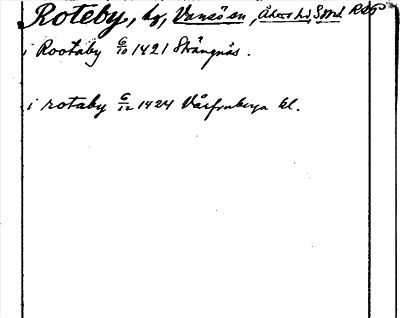 Roteby, by, Vansö sn, Åkers hd, Södml. RAP
i Rootaby 6/10 1421 Strängnäs.
i rotaby 6/12 1424 Vårfruberga kl.